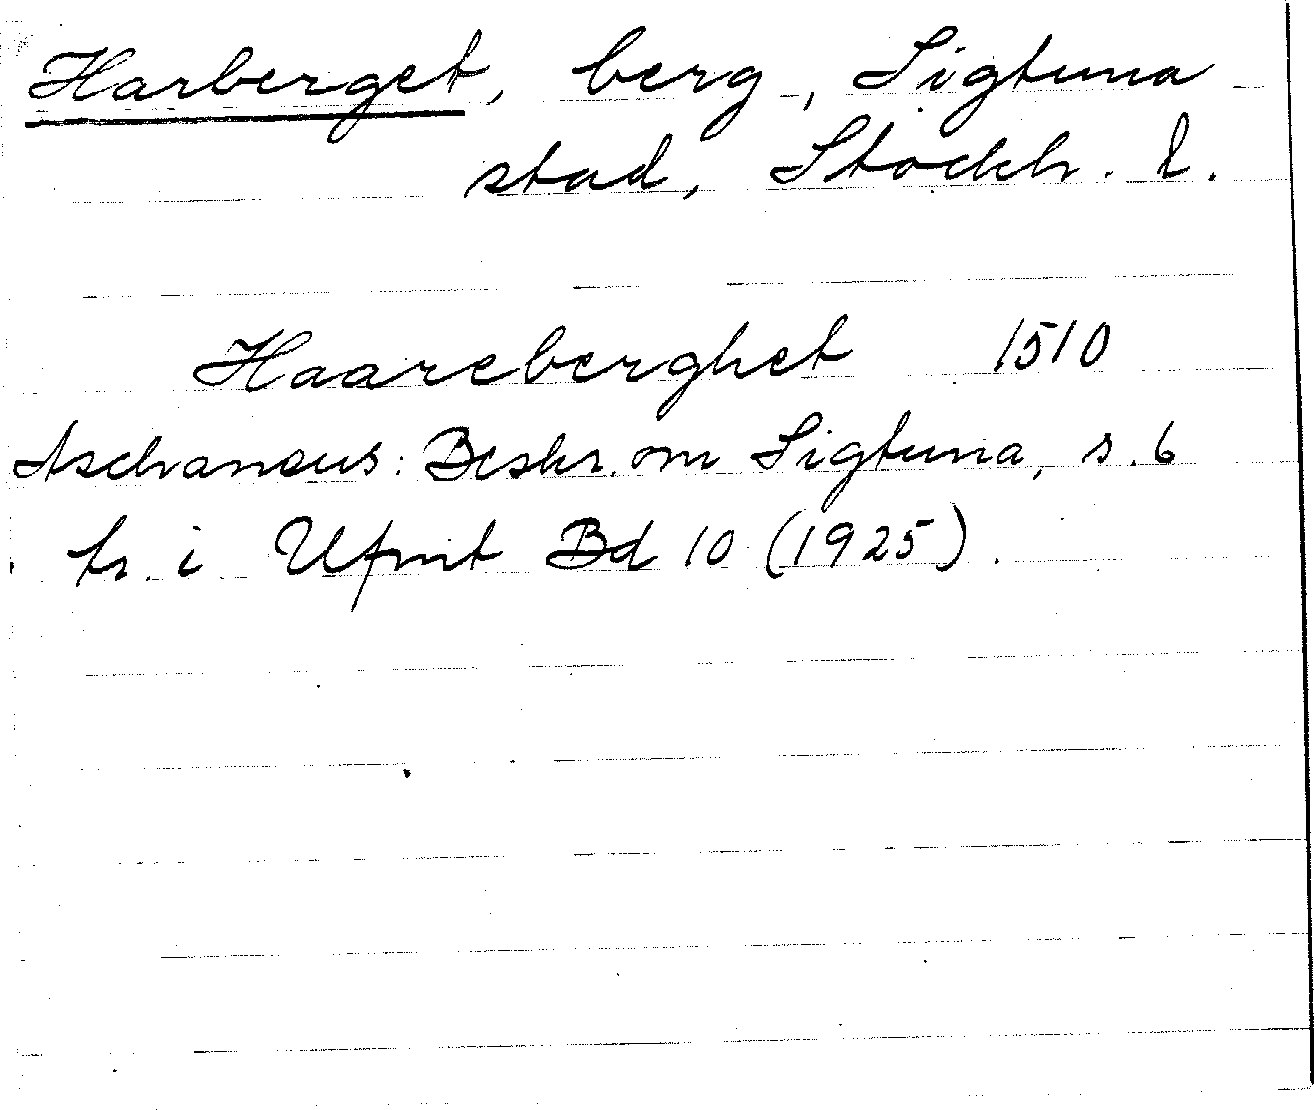 Harberget, berg, Sigtuna
stad, Stockh. l.
Haareberghet 1510
Aschaneus: Beskr. om Sigtuna, s. 6
tr. i Ufmt Bd 10 (1925).